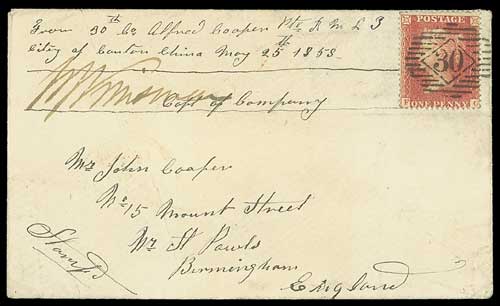 From 30th Co Alfred Cooper Pte R M L I
City of Canton China May 25th 1858
Capt of Company
POSTAGE
30
ONE PENNY
Mr John Cooper
No 15 Mount Street
Nr St Pauls
Birmingham
England
Stamps